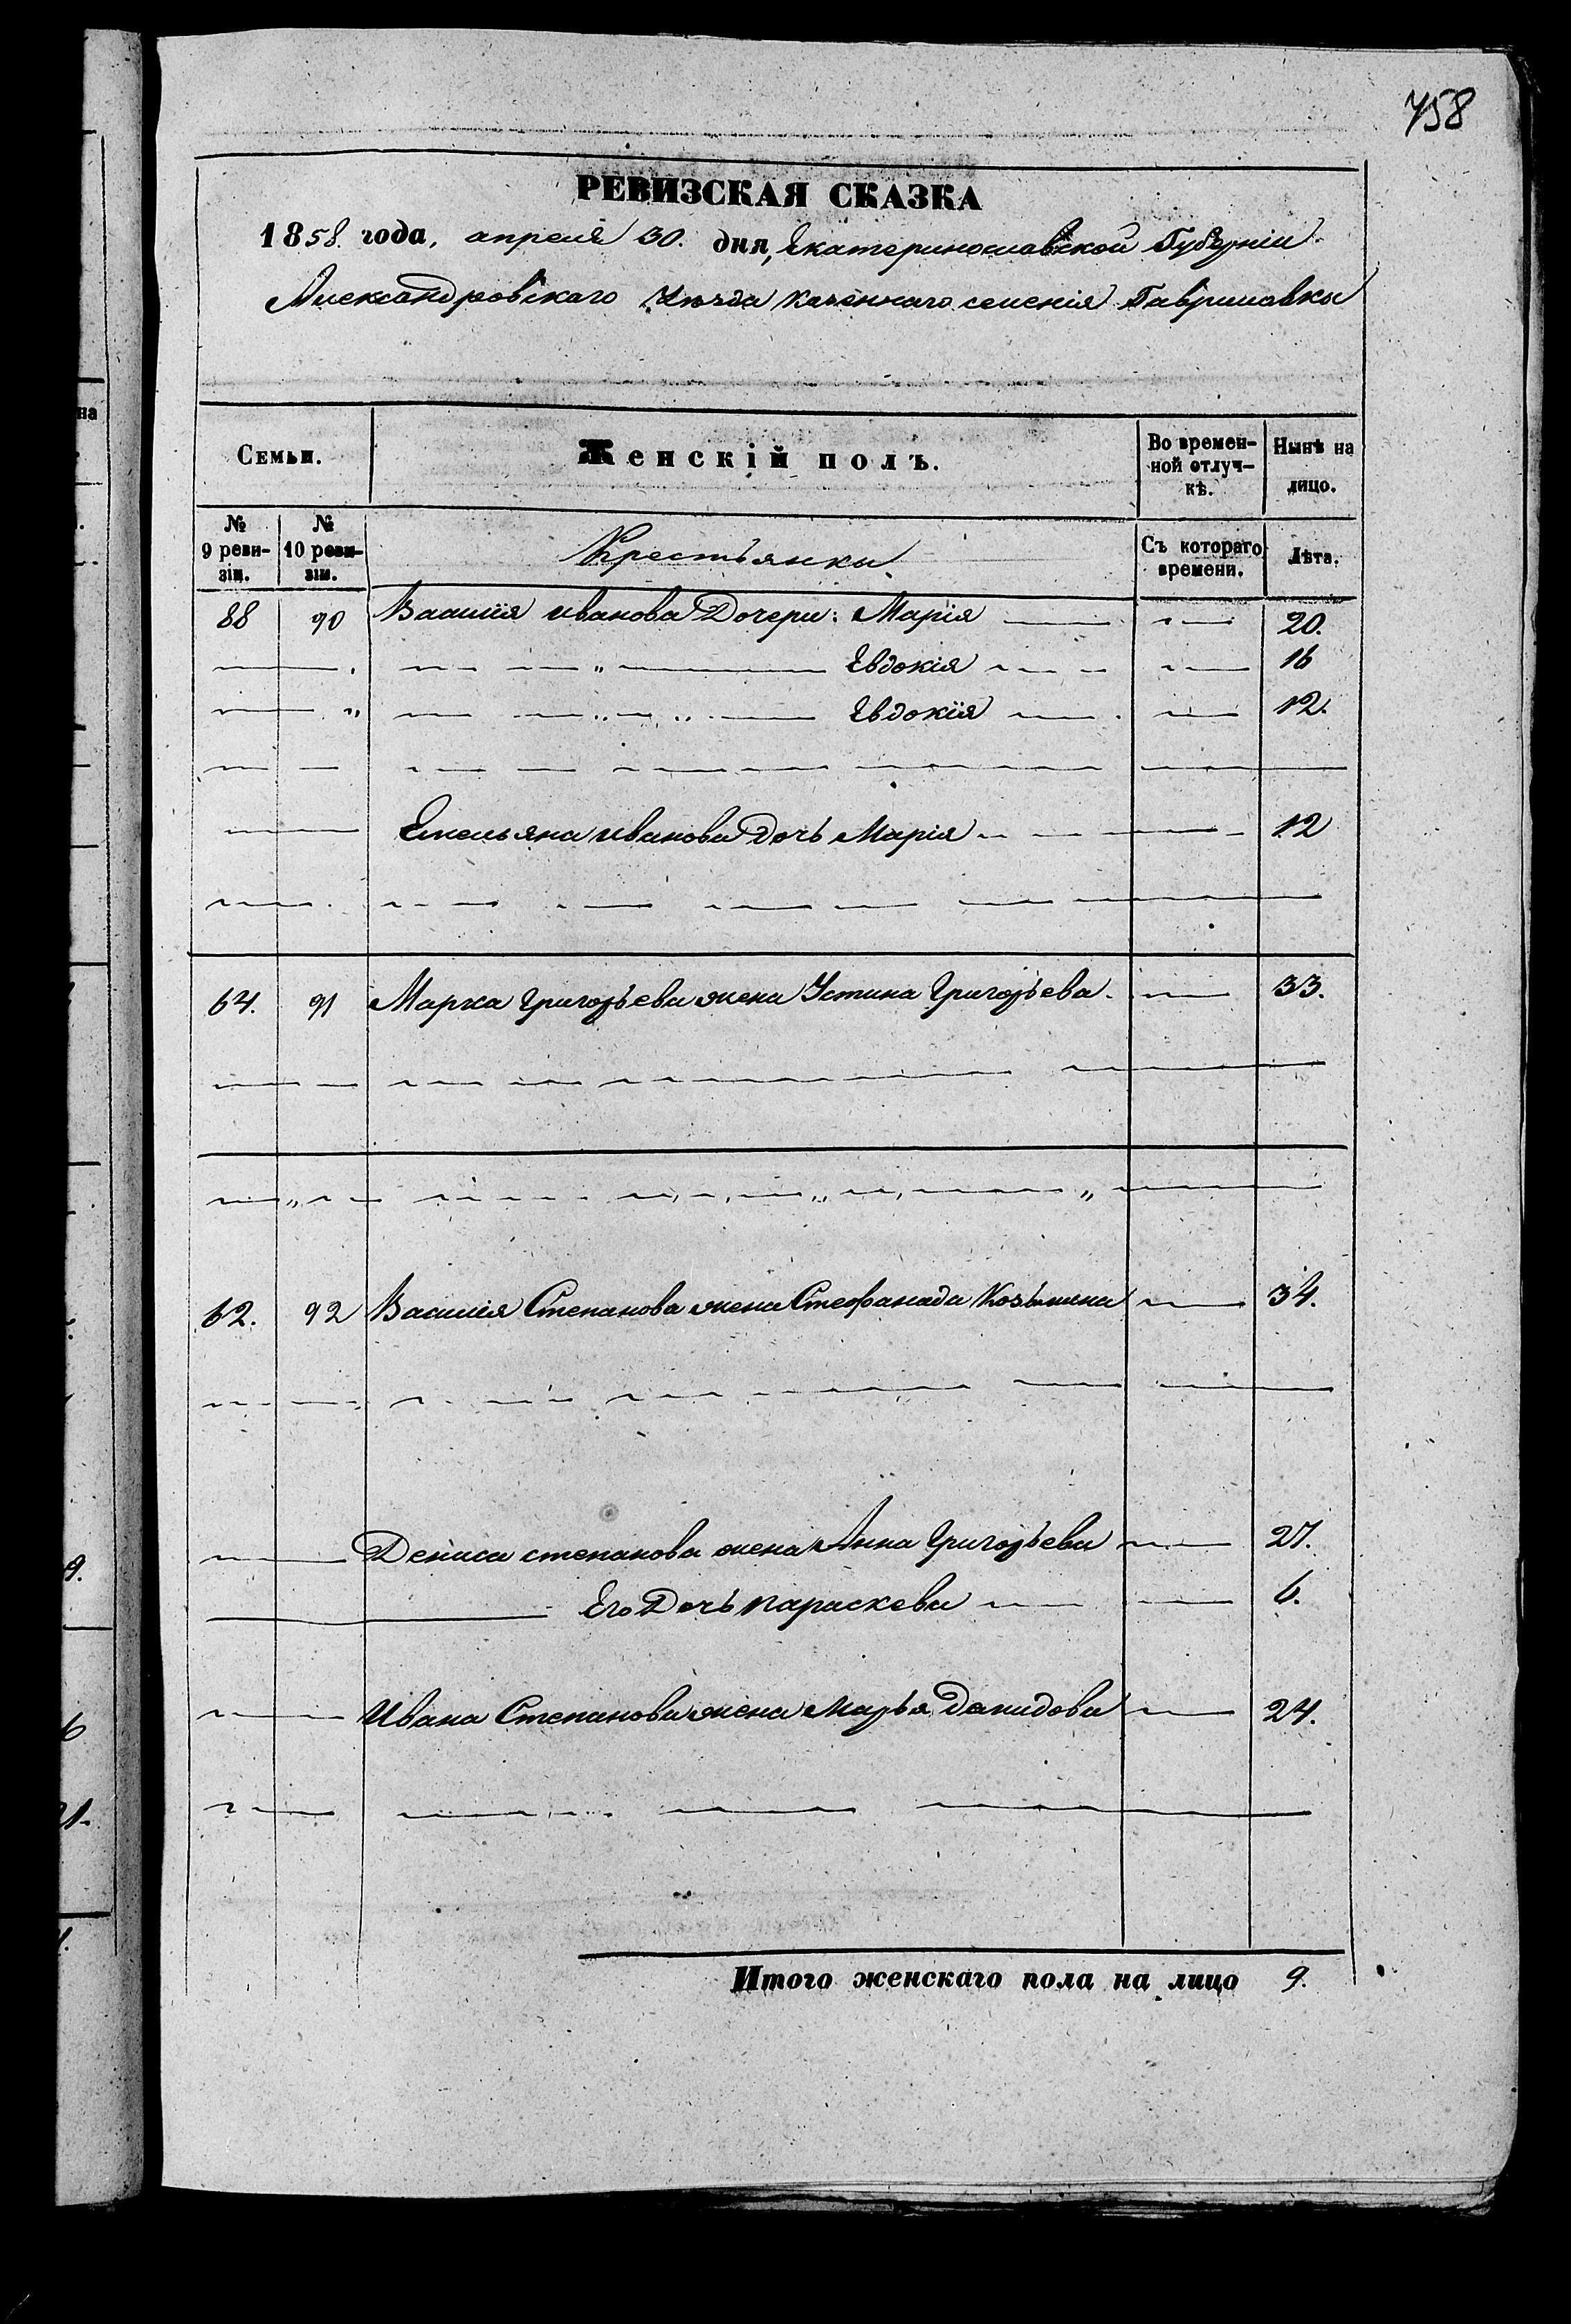 758
РЕВИЗСКАЯ СКАЗКА
1858. года, апреля 30. дня, Екатеринославской Губерніи
Александровскаго Уѣзда казеннаго селенія Гавриловки
Семьи. Женскій полъ. Во времен- Нынѣ на
ной отлуч- лицо.
кѣ.
№ № Крестьянки. Съ котораго Лѣта.
9 реви- 10 реви- времени.
зіи. зіи.
88 90 Василія Иванова Дочери: Марія 20.
Евдокія 16
Евдокія 12.
Емельяна Иванова Дочь Марія 12
64. 91 Марка Григорьева жена Устина Григорьева. 33.
62. 92 Василія Степанова жена Стефанида Козьмина 34.
Дениса степанова жена Анна Григорьева 27.
Его Дочь параскева 6.
Ивана Степанова жена Марья Данидова 24.
Итого женскаго пола на лицо 9.